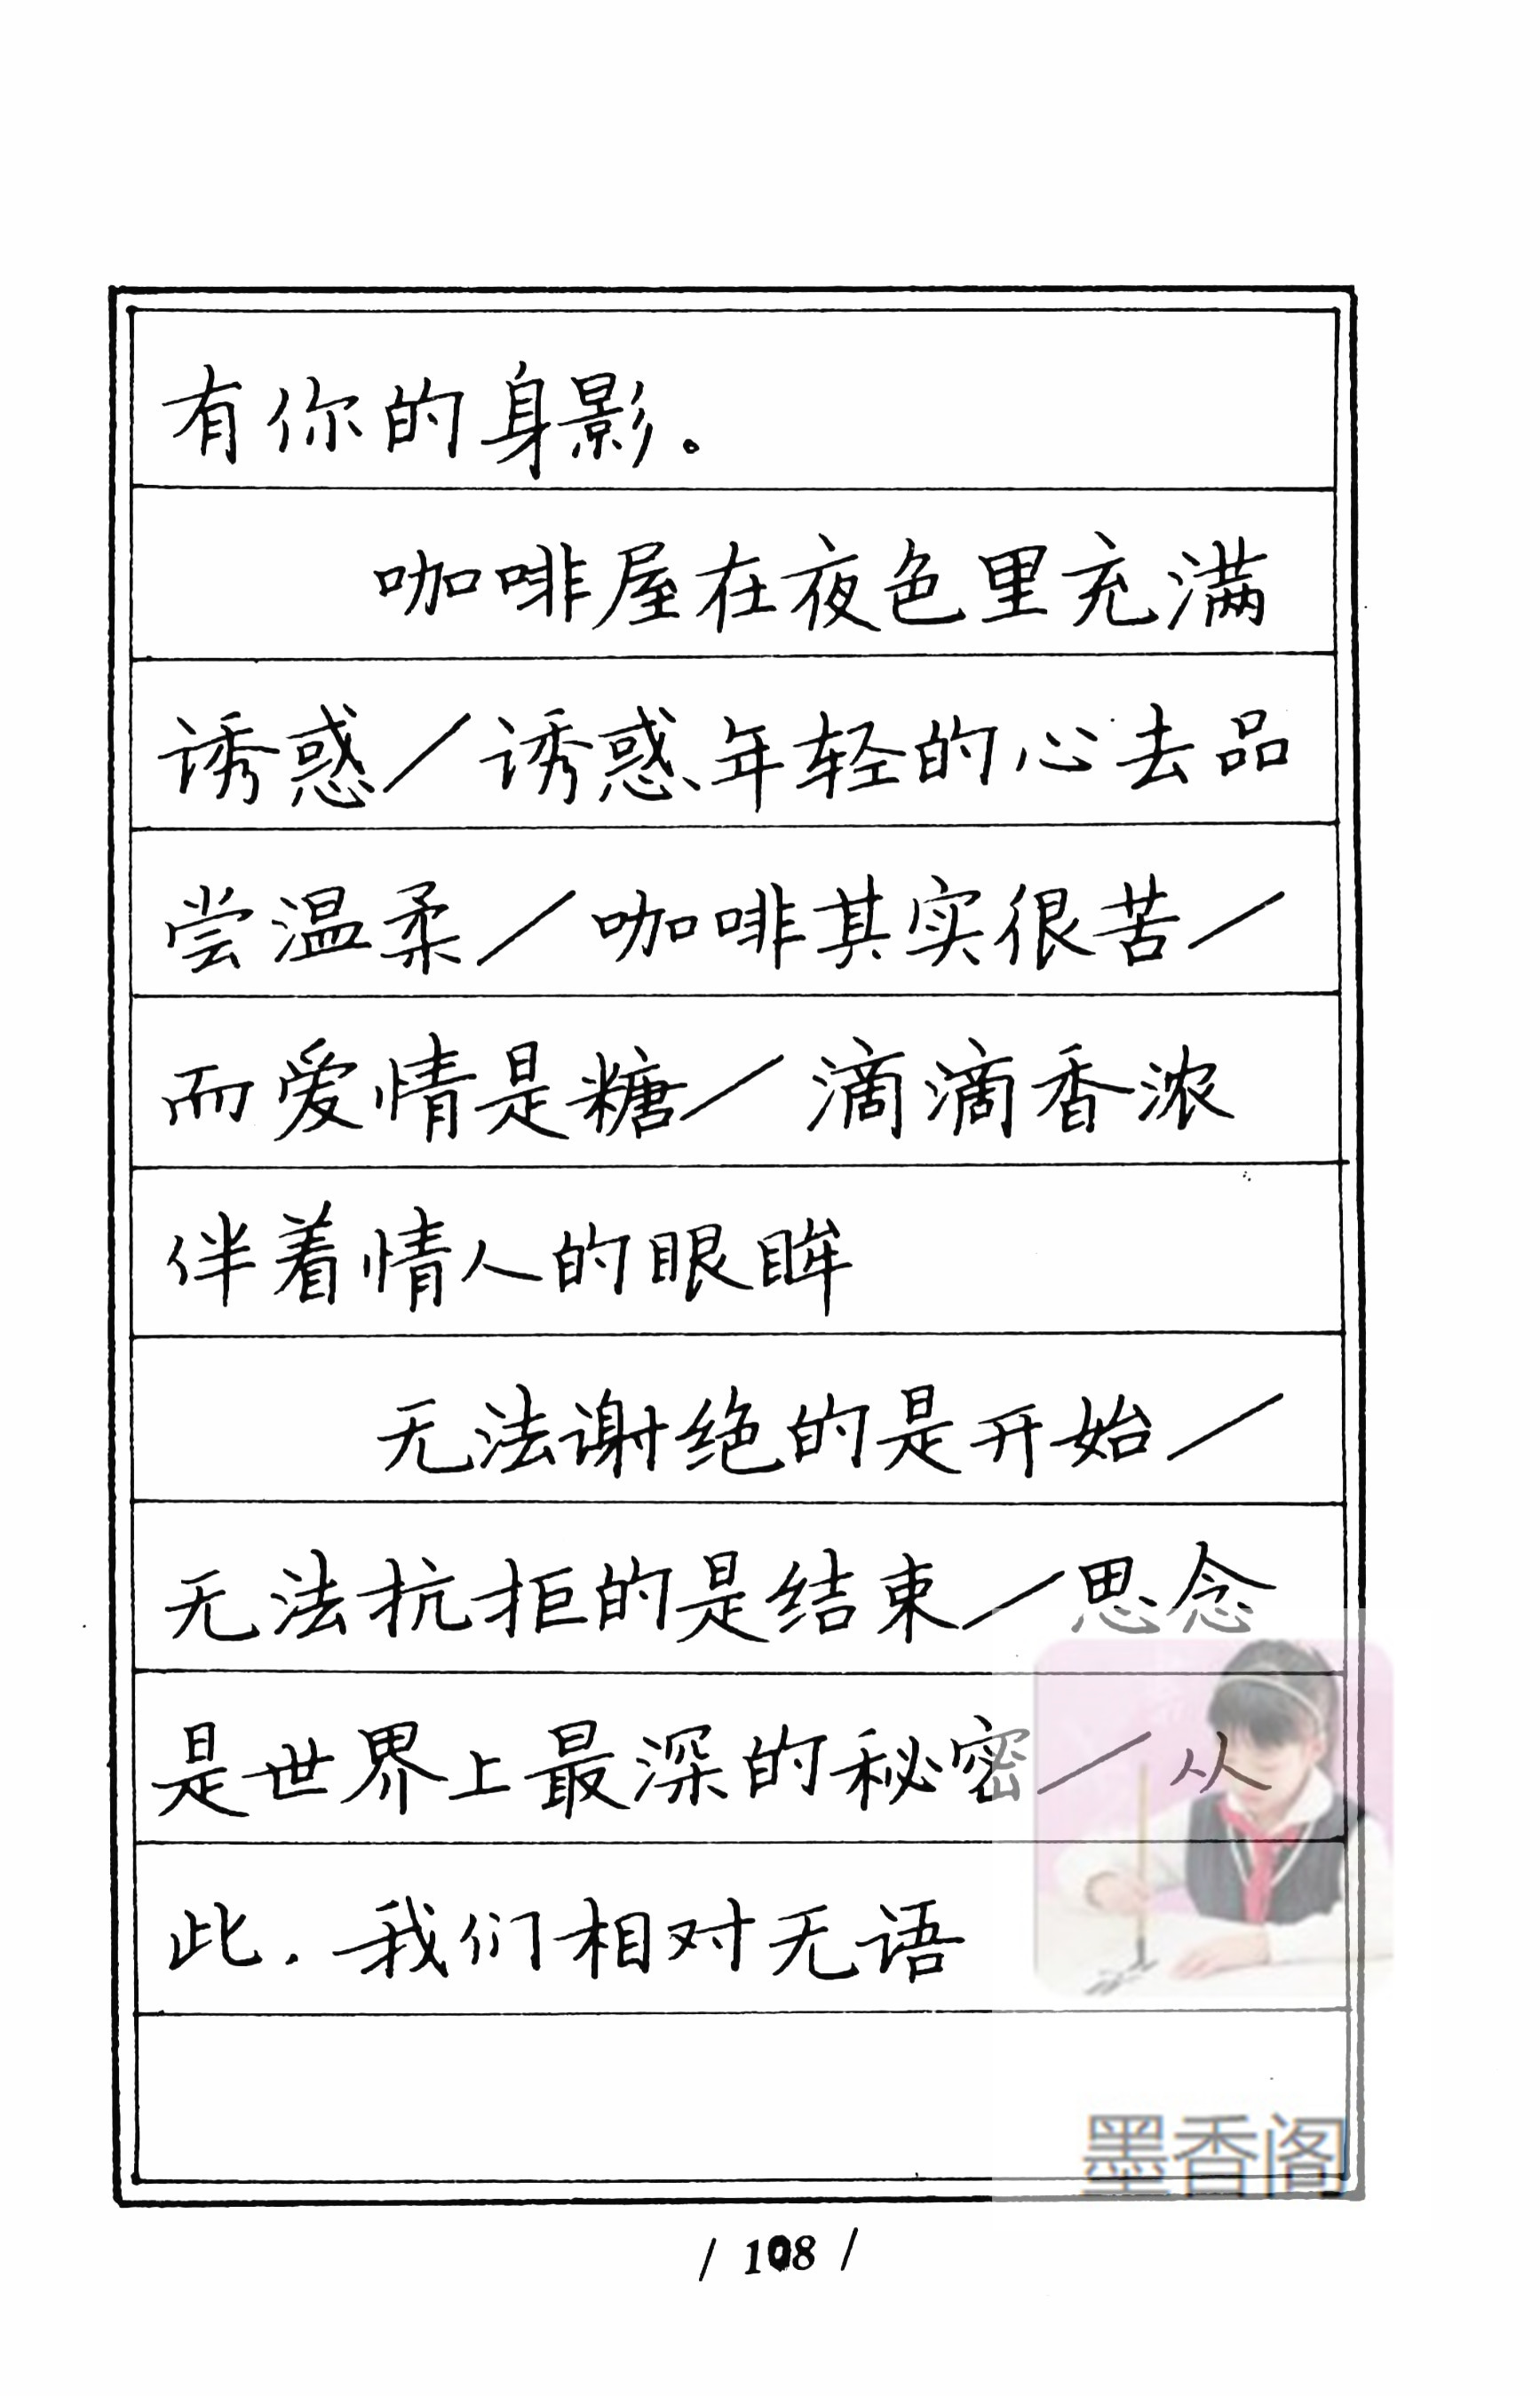 有你的身影。
咖啡屋在夜色里充满
诱惑／诱惑年轻的心去品
尝温柔／咖啡其实很苦／
而爱情是糖／滴滴香浓
伴着情人的眼眸
无法谢绝的是开始／
无法抗拒的是结束／思念
是世界上最深的秘密／从
此．我们相对无语
墨香阁
/ 108 /